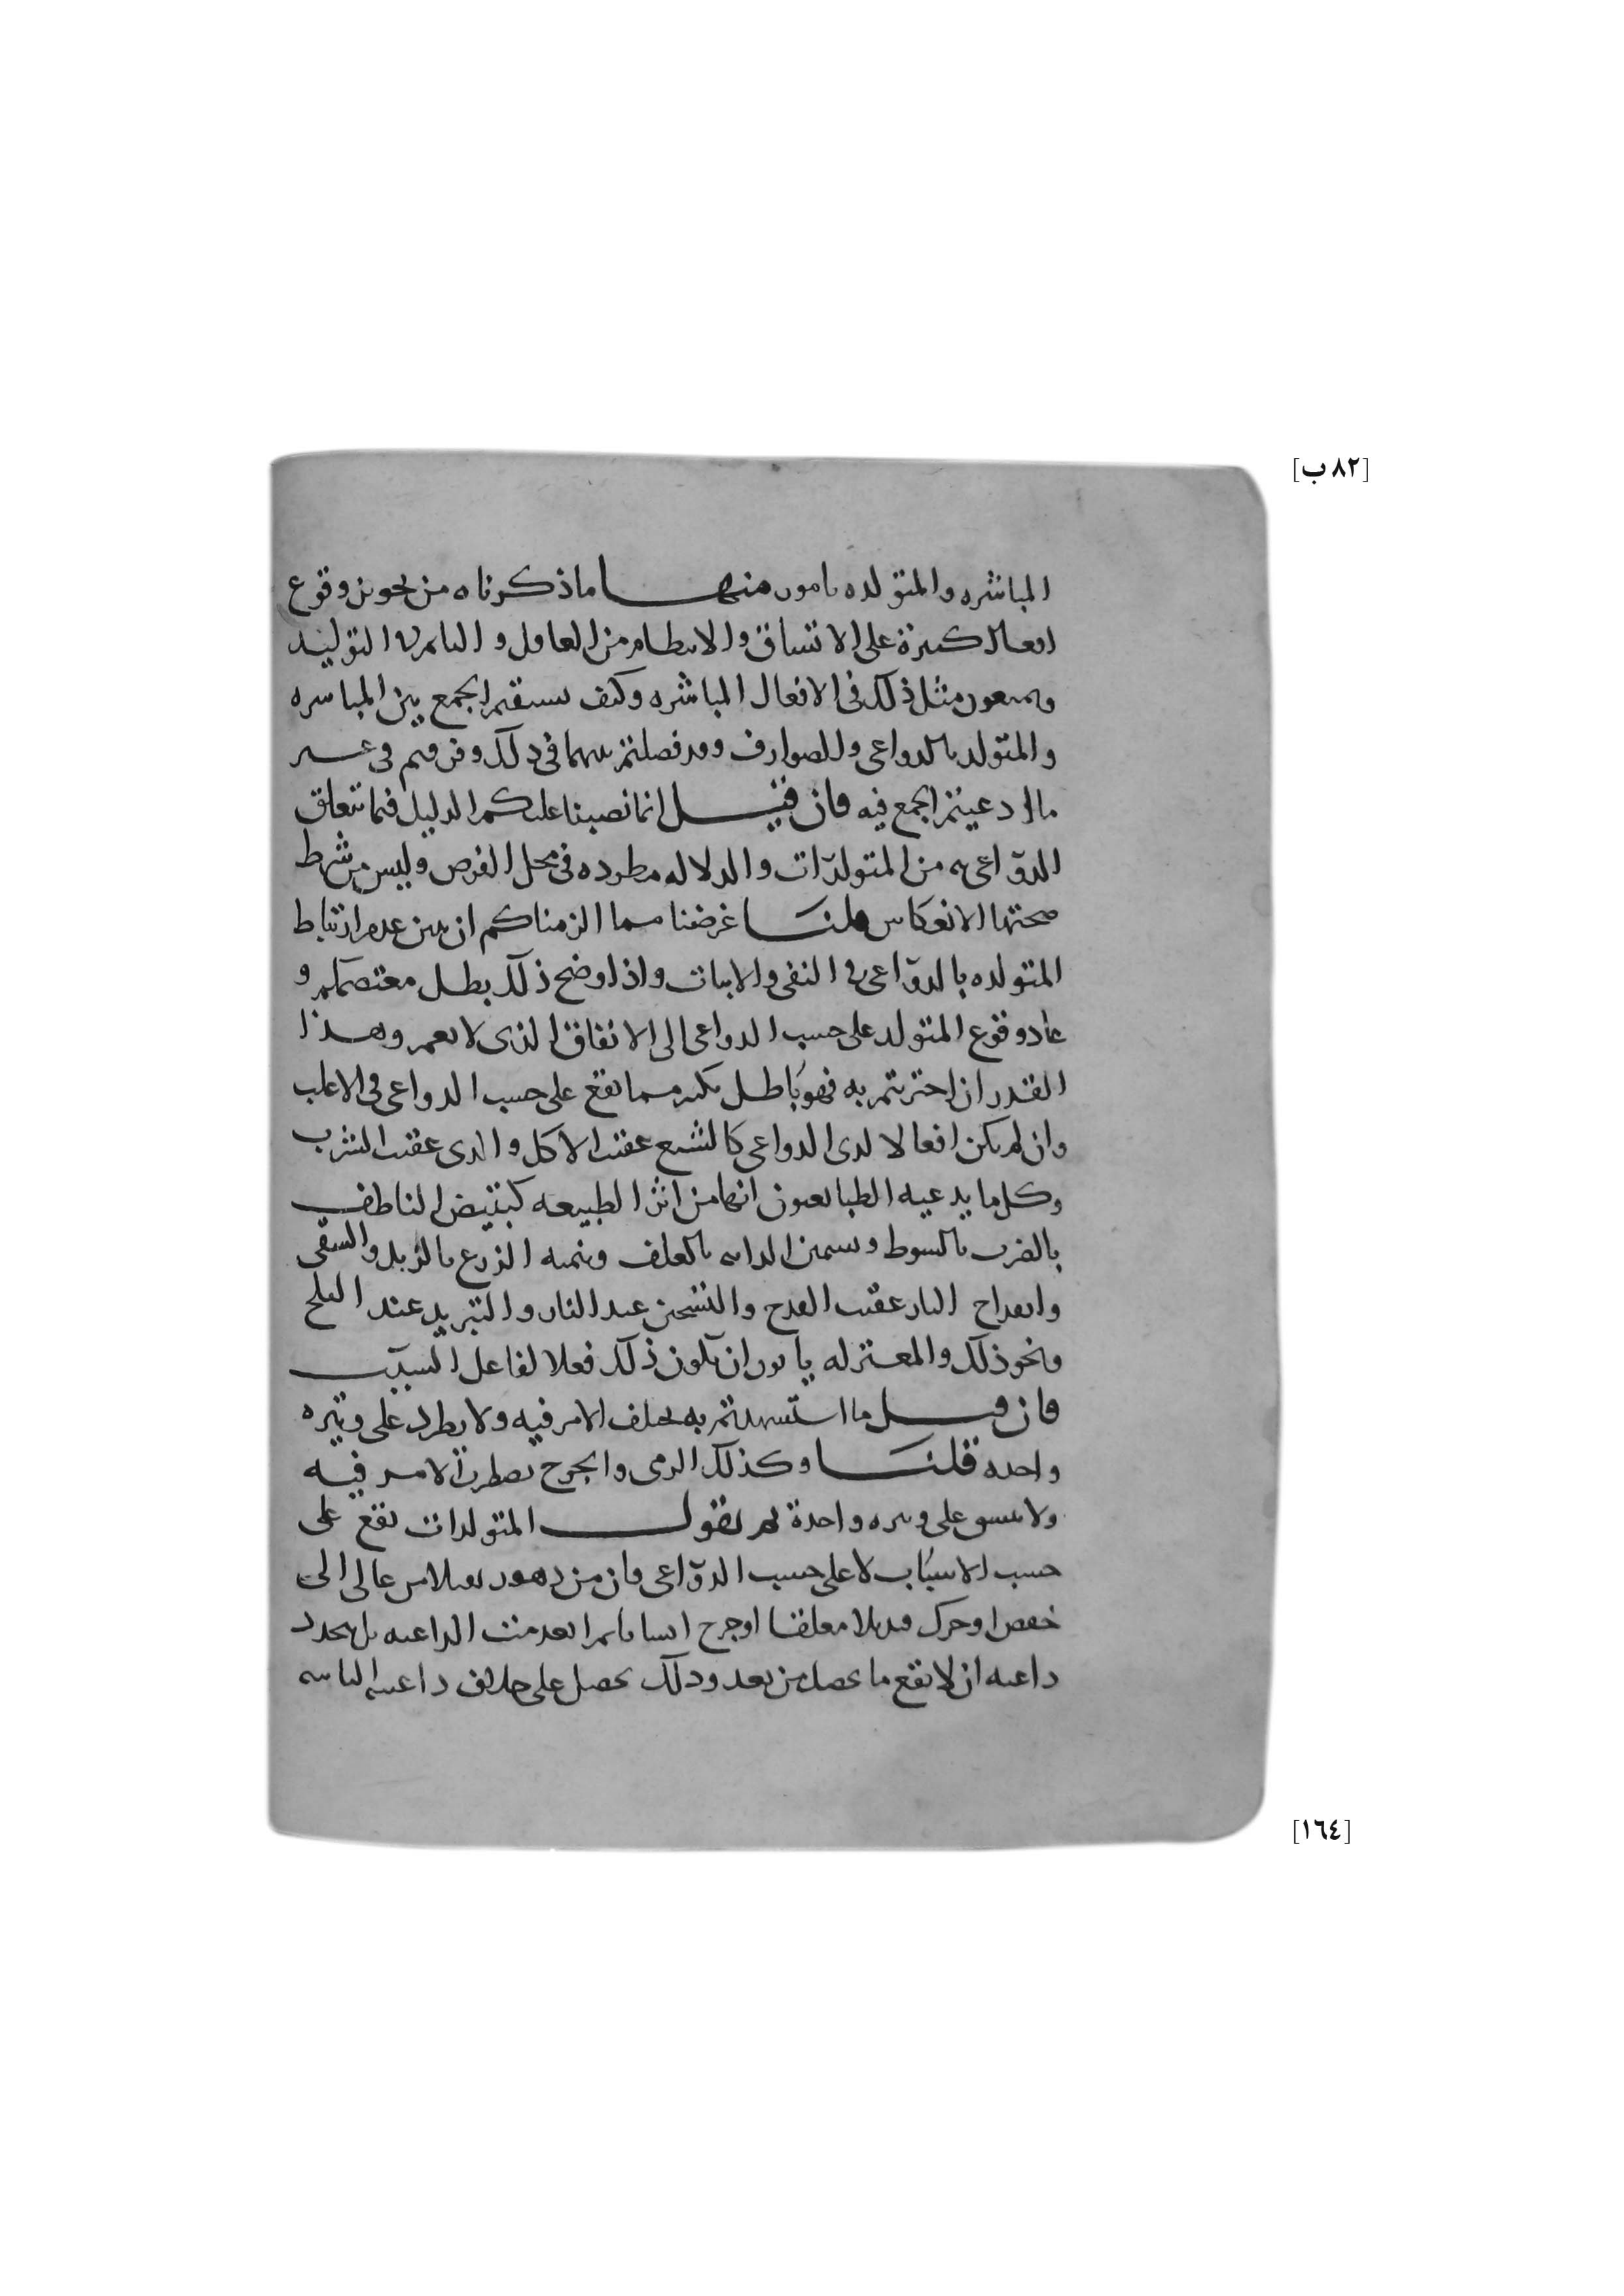 [٨٢ ب]
المباشره والمتولده بامور منها ما ذكرناه من تجويز وقوع
افعال كثيرة على الاتساق والانتظام من الغافل والنائم في التوليد
ويمنعون مثل ذلك في الافعال المباشره وكيف يستقيم الجمع بين المباشره
والمتولد بالدواعي والصوارف وقد فصلتم بينهما في ذلك وفرقتم في عين
ما ادعيتم الجمع فيه فان قيل انما نصبنا عليكم الدليل فيما تتعلق
الدواعي به من المتولدات والدلاله مطرده في محل الفرض وليس من شرط
صحتها الانعكاس قلنا غرضنا مما الزمناكم ان نبين عدم ارتباط
المتولده بالدواعي في النفي والاثبات واذا وضح ذلك بطل معتصمكم و
عاد وقوع المتولد على حسب الدواعي الى الاتفاق الذي لا يعم وهذا
القدر ان اجتزيتم به فهو باطل بكثير مما يقع على حسب الدواعي في الاغلب
وان لم يكن افعالا لذي الدواعي كالشبع عقيب الاكل والري عقيب الشرب
وكل ما يدعيه الطبائعيون انها من اثر الطبيعه كتبييض الناطف
بالضرب بالسوط وتسمين الدابه بالعلف وتنميه الزرع بالزبل والسقي
وانقداح النار عقيب القدح والتسخن عند النار والتبريد عند الثلج
ونحو ذلك والمعتزله يابون ان يكون ذلك فعلا لفاعل السبب
فان قيل ما استشهدتم به يختلف الامر فيه ولا يطرد على وتيره
واحده قلنا وكذلك الرمي والجرح يضطرب الامر فيه
ولا يتسق على وتيره واحدة ثم نقول المتولدات تقع على
حسب الاسباب لا على حسب الدواعي فان من دهور ثقيلا من عالي الى
خفض او حرك قنديلا معلقا او جرح انسانا ثم انعدمت الداعيه بل تجدد
داعيه ان لا يقع ما يحصل من بعد وذلك يحصل على خلاف داعيته الثانيه
[١٦٤]